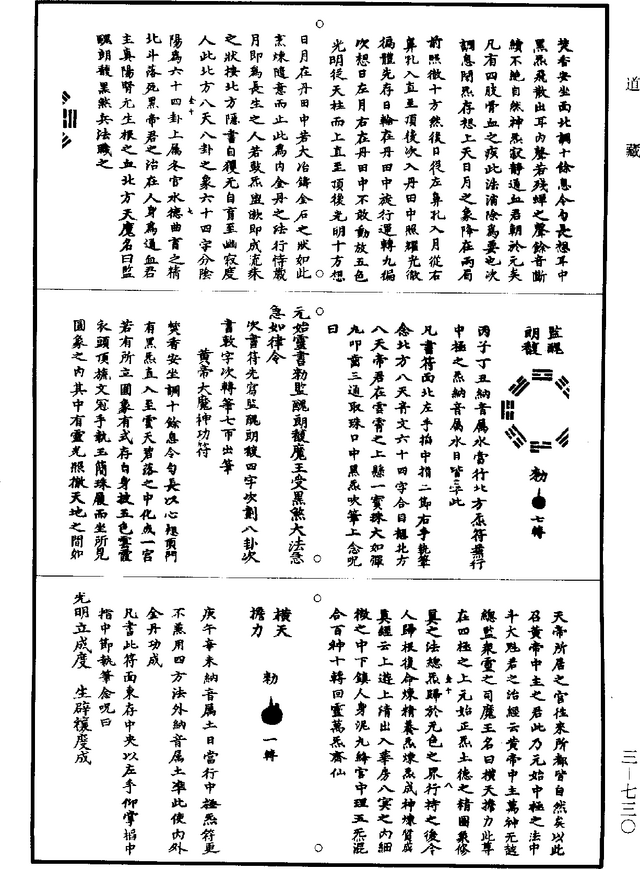 道藏
焚香安坐面北調十餘息令勻長想耳中
黑炁飛散出耳內聲若殘蟬之聲餘音斷
續不絕自然神炁寂靜通血君朝於元矣
凡有四肢骨血之疾此法消除爲要也次
調息閉炁存想上天日月之象降在兩肩
前照徹十方然後日從左鼻孔入月從右
鼻孔入直至頂後次入丹田中照耀光徹
徧體先存日輪在丹田中旋行運轉九徧
次想日左月右在丹田中不敢動放五色
光明從天柱而上直至頂後光明十方想
日月在丹田中若大冶鑄金石之狀如此
烹煉隨意而止此爲內金丹之法行持歲
月即爲長生之人若歃炁盟漱即成流珠
之狀按北方隱書自獲元自育至幽寂度
人此北方八天八卦之象六十四字分陰
陽爲六十四卦上屬冬官水德曲育之精
北斗落死黑帝君之治在人身爲通血君
主真陽腎元生根之血北方天魔名曰監
醜朗馥黑煞兵法職之
監醜
朗馥
勑
七轉
丙子丁丑納音屬水當行北方炁符兼行
中極之炁納音屬水日皆準此
凡書符面北左手掐中指二節右手執筆
念北方八天音文六十四字合目想北方
八天帝君在雲霄之上懸一寶珠大如彈
丸叩齒三通取珠口中黑炁吹筆上念呪
曰
元始靈書勑監醜朗馥魔王受黑煞大法急
急如律令
次書符先寫監醜朗馥四字次劃八卦次
書勑字次轉筆七帀出筆
黃帝大魔神功符
焚香安坐調十餘息令勻長以心想頂門
有黑炁直入至雲天碧落之中化成一宮
若有所立圖象有式存自身披五色雲霞
衣頭頂旒文冠手執玉簡珠履而坐所見
圖象之內其中有靈光照徹天地之間如
天帝所居之宮往來所都皆自然矣以此
召黃帝中主之君此乃元始中極之法中
斗大魁君之治經云黃帝中主萬神无越
總監衆靈之司魔王名曰橫天擔力此尊
在四極之上元始正炁土德之精圖象修
真之法總炁歸於元色之界行持之後令
人歸根復命煉精養炁煉炁成神煉質成
真經云上遊上清出入華房八冥之內細
微之中下鎮人身泥丸絳宮中理五炁混
合百神十轉回靈萬炁齊仙
橫天
擔力
勑
一轉
庚午辛未納音屬土日當行中極炁符更
不兼用四方法外納音屬土準此使內外
金丹功成
凡書此符面東存中央以左手仰掌掐中
指中節執筆念呪曰
光明立成度 生辟穰度成
三—七三〇